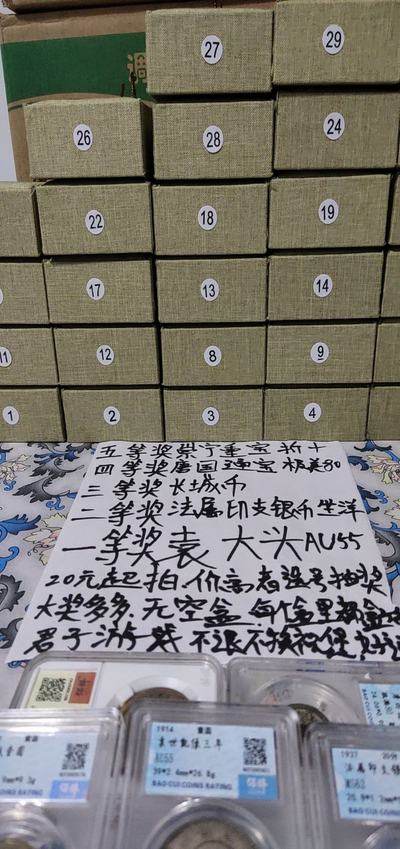 27
29
26
28
24
22
18
19
17
13
14
11
12
8
9
1
2
3
4
五等奖崇宁重宝折十
四等奖唐国通宝极美80
三等奖长城币
二等奖法属印支银币坐洋
一等奖袁大头AU55
20元起拍,价高者选号抽奖
大奖多多,无空盒,每个盒里都
君子游戏 不退不换祝
1914
袁世凯像三年
39*2.6mm*26.8g
BAO CUI COINS RATING
1937
20分
法属印支
MS62
COINS RATING